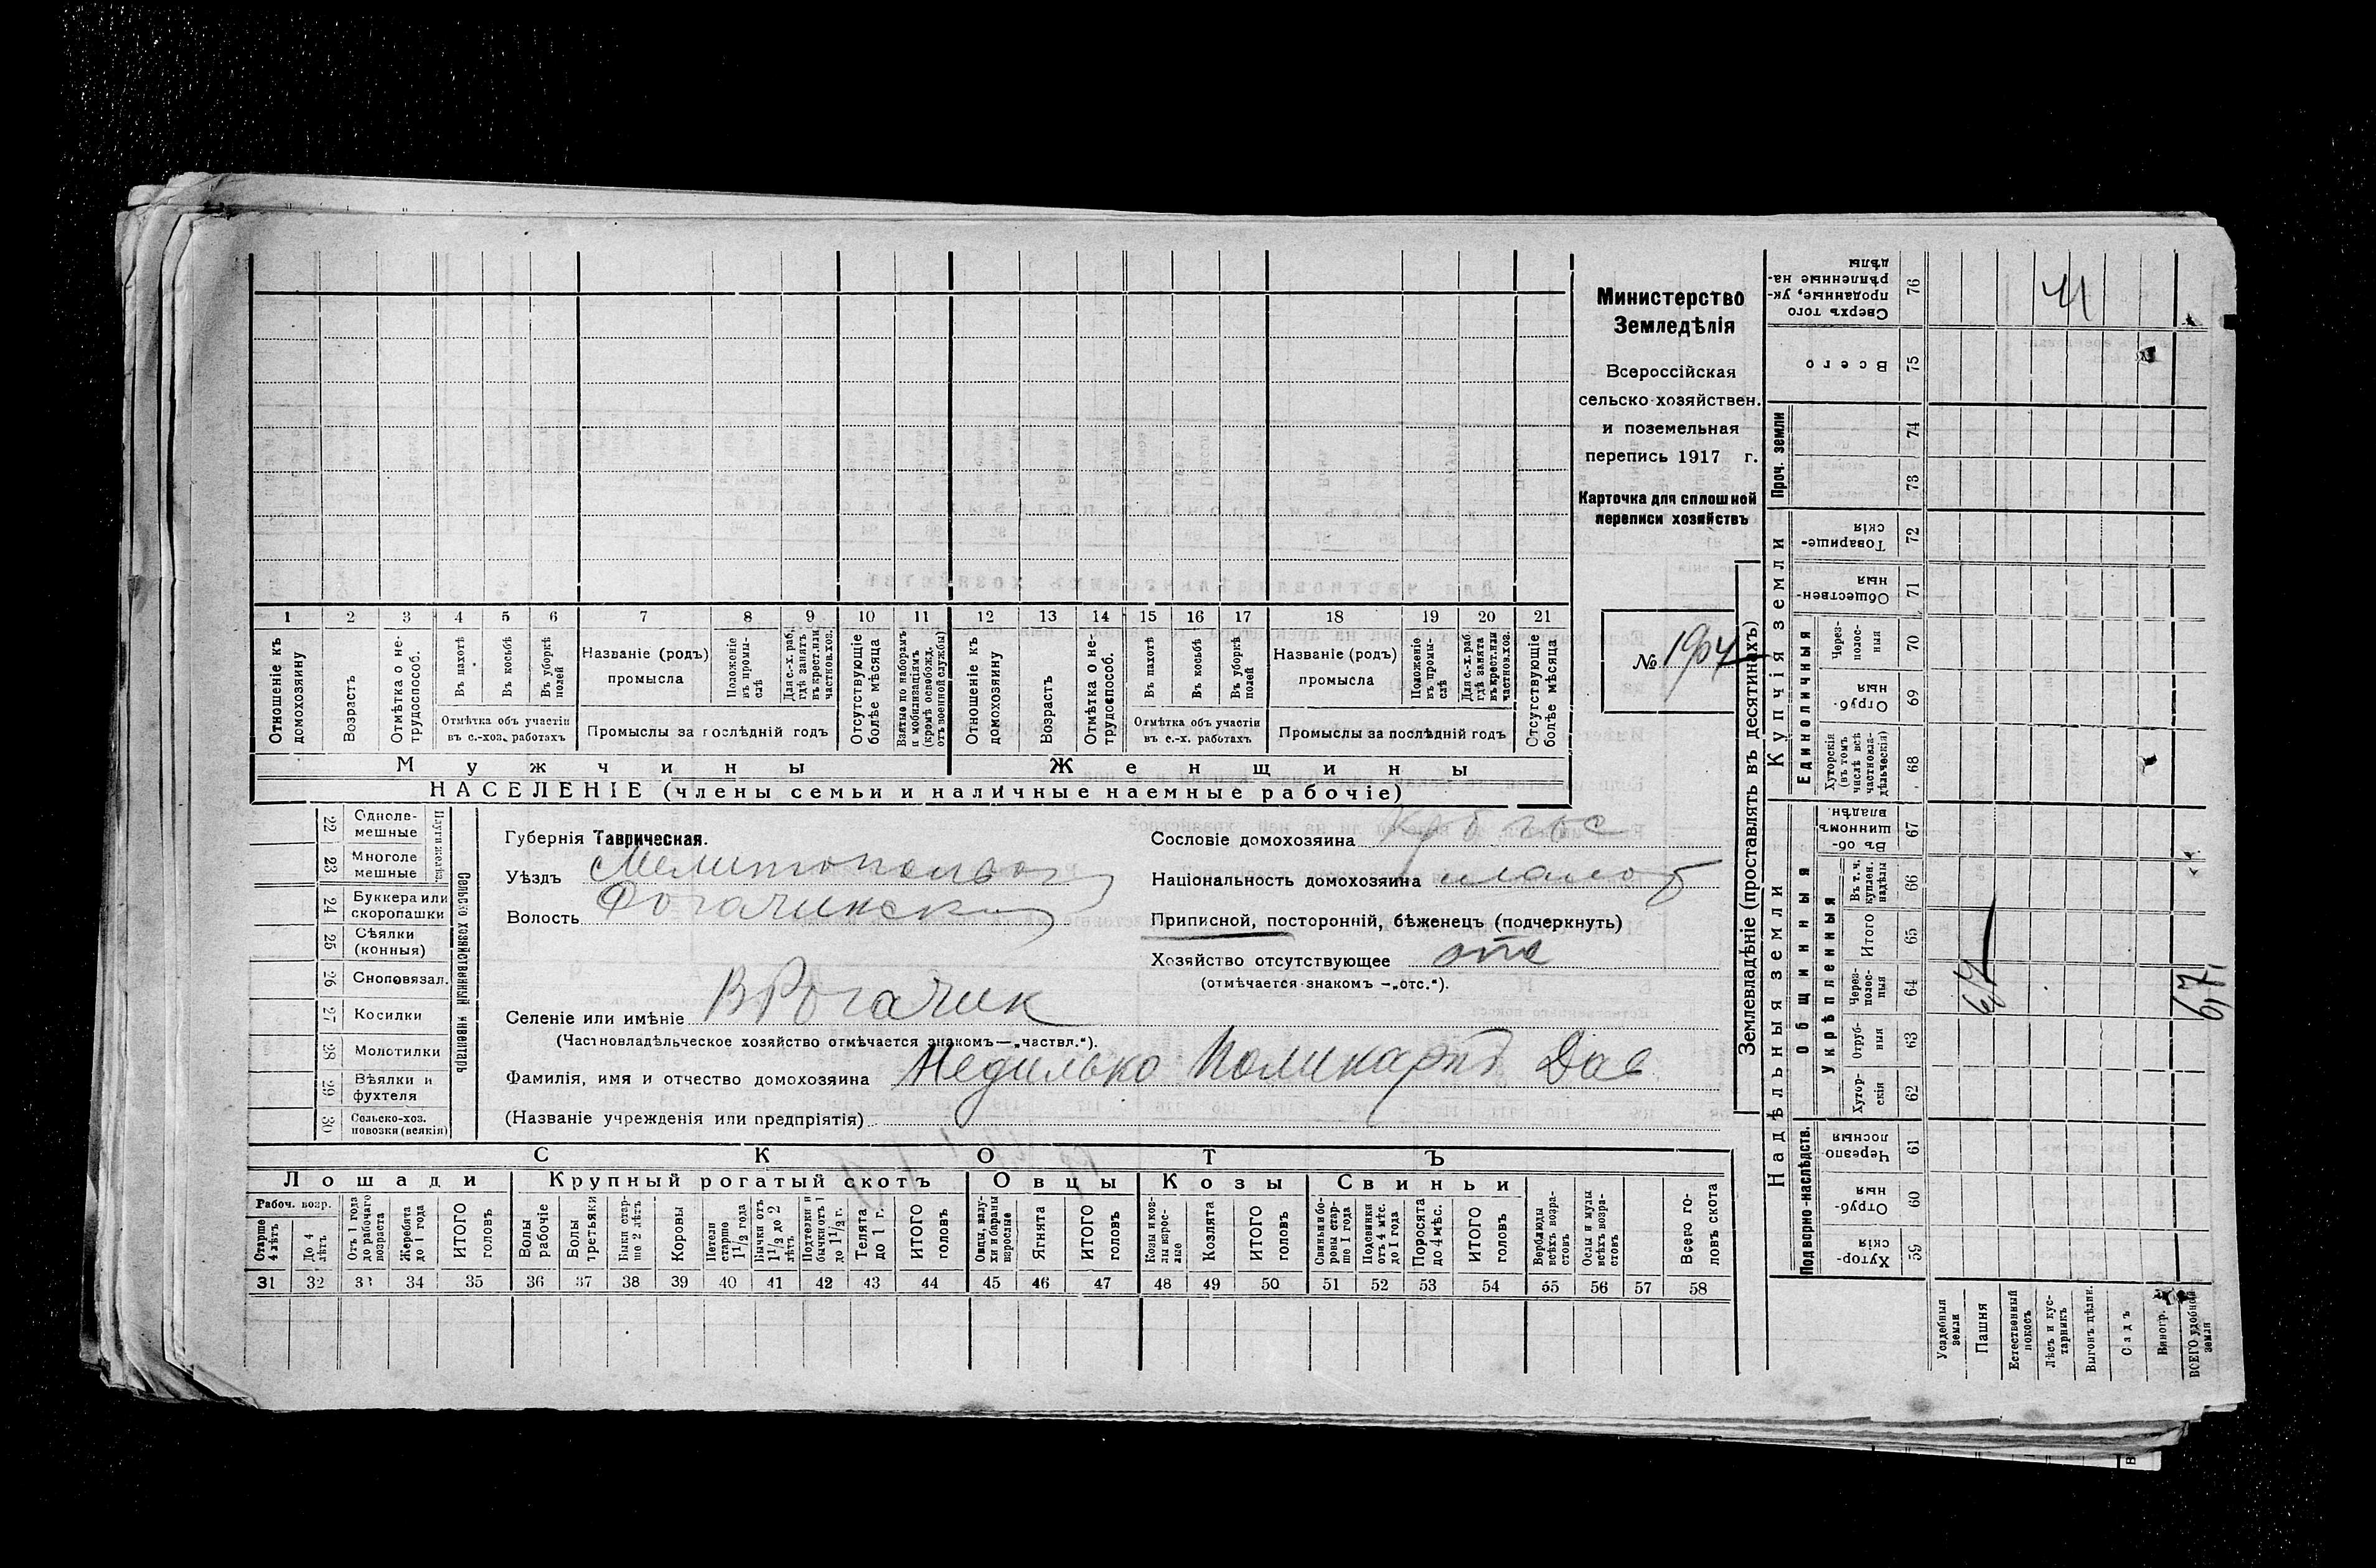 Министерство
Земледѣлія
Всероссійская
сельско-хозяйствен.
и поземельная
перепись 1917 г.
Карточка для сплошной
переписи хозяйствъ
№ 1904
1 2 3 4 5 6 7 8 9 10 11 12 13 14 15 16 17 18 19 20 21
Отношеніе къ домохозяину
Возрастъ
Отмѣтка о не-трудоспособ.
Въ пахотѣ
Въ косьбѣ
Въ уборкѣ полей
Отмѣтка объ участіи
въ с.-хоз. работахъ
Названіе (родъ)
промысла
Положеніе въ промы-слѣ
Для с.-х. раб., гдѣ занятъ въ крест. или частнов. хоз.
Промыслы за послѣдній годъ
Отсутствующіе болѣе мѣсяца
Взятые по наборамъ и мобилизаціямъ (кромѣ освобожд. отъ военной службы)
Отношеніе къ домохозяину
Возрастъ
Отмѣтка о не-трудоспособ.
Въ пахотѣ
Въ косьбѣ
Въ уборкѣ полей
Отмѣтка объ участіи
въ с.-х. работахъ
Названіе (родъ)
промысла
Положеніе въ промы-слѣ
Для с.-х. раб. гдѣ занята въ крест. или частнов. хоз.
Промыслы за послѣдній годъ
Отсутствующіе болѣе мѣсяца
Мужчины Женщины
НАСЕЛЕНІЕ (члены семьи и наличные наемные рабочіе)
22 Одноле-мешные
23 Многоле мешные
24 Буккера или скоропашки
25 Сѣялки (конныя)
26 Сноповязал.
27 Косилки
28 Молотилки
29 Вѣялки и фухтеля
30 Сельско-хоз. повозки (всякія)
Плуги желѣз.
Сельско хозяйственный инвентарь
Губернія Таврическая.
Уѣздъ Мелитопольс
Волость Рогачинск
Селеніе или имѣніе В Рогачик
(Частновладѣльческое хозяйство отмѣчается знакомъ—„частвл.“).
Фамилія, имя и отчество домохозяина Недилько Поликарпъ Дав
(Названіе учрежденія или предпріятія)
Сословіе домохозяина
Національность домохозяина малор
Приписной, посторонній, бѣженецъ (подчеркнуть)
Хозяйство отсутствующее отс
(отмѣчается знакомъ —„отс.“).
СКОТЪ
Лошади Крупный рогатый скотъ Овцы Козы Свиньи
Рабоч. возр.
Старше 4 лѣтъ
До 4 лѣтъ
Отъ 1 года до рабочаго возраста
Жеребята до 1 года
ИТОГО головъ
Волы рабочіе
Волы третьяки
Быки стар-ше 2 лѣтъ
Коровы
Нетели старше 1 1/2 года
Бычки отъ 1 1/2 до 2 лѣтъ
Подтелки и бычки отъ 1 до 1 1/2 г.
Телята до 1 г.
ИТОГО головъ
Овцы, валу-хи и бараны взрослые
Ягнята
ИТОГО головъ
Козы и коз-лы взрос-лые
Козлята
ИТОГО головъ
Свиньи и бо-ровы стар-ше 1 года
Подсвинки отъ 4 мѣс. до 1 года
Поросята до 4 мѣс.
ИТОГО головъ
Верблюды всѣхъ возра-стовъ
Ослы и мулы всѣхъ возра-стовъ
Всего го-ловъ скота
31 32 33 34 35 36 37 38 39 40 41 42 43 44 45 46 47 48 49 50 51 52 53 54 55 56 57 58
Землевладѣніе (проставлять въ десятинахъ)
Надѣльныя земли
Купчія земли
Проч. земли
Подворно-наслѣдств.
Общинныя
Укрѣпленныя
Единоличныя
Сверхъ того проданные, ук-рѣпленные на-дѣлы 76
Всего 75
74
73
Товарище-скія 72
Обществен-ныя 71
Через-полос-ныя 70
Отруб-ныя 69
Хуторскія (въ томъ числѣ всѣ частновла-дѣльческія) 68
Въ об-щинномъ владѣн. 67
Въ т. ч. куплен. надѣлы 66
Итого 65
Через-полос-ныя 64
Отруб-ныя 63
Хутор-скія 62
Черезпо-лосныя 61
Отруб-ныя 60
Хутор-скія 59
Усадебныя земли
Пашня
Естественный покосъ
Лѣсъ и кус-тарникъ
Выгонъ цѣлин.
Садъ
Виногр.
ВСЕГО удобной земли
6,7
6,7